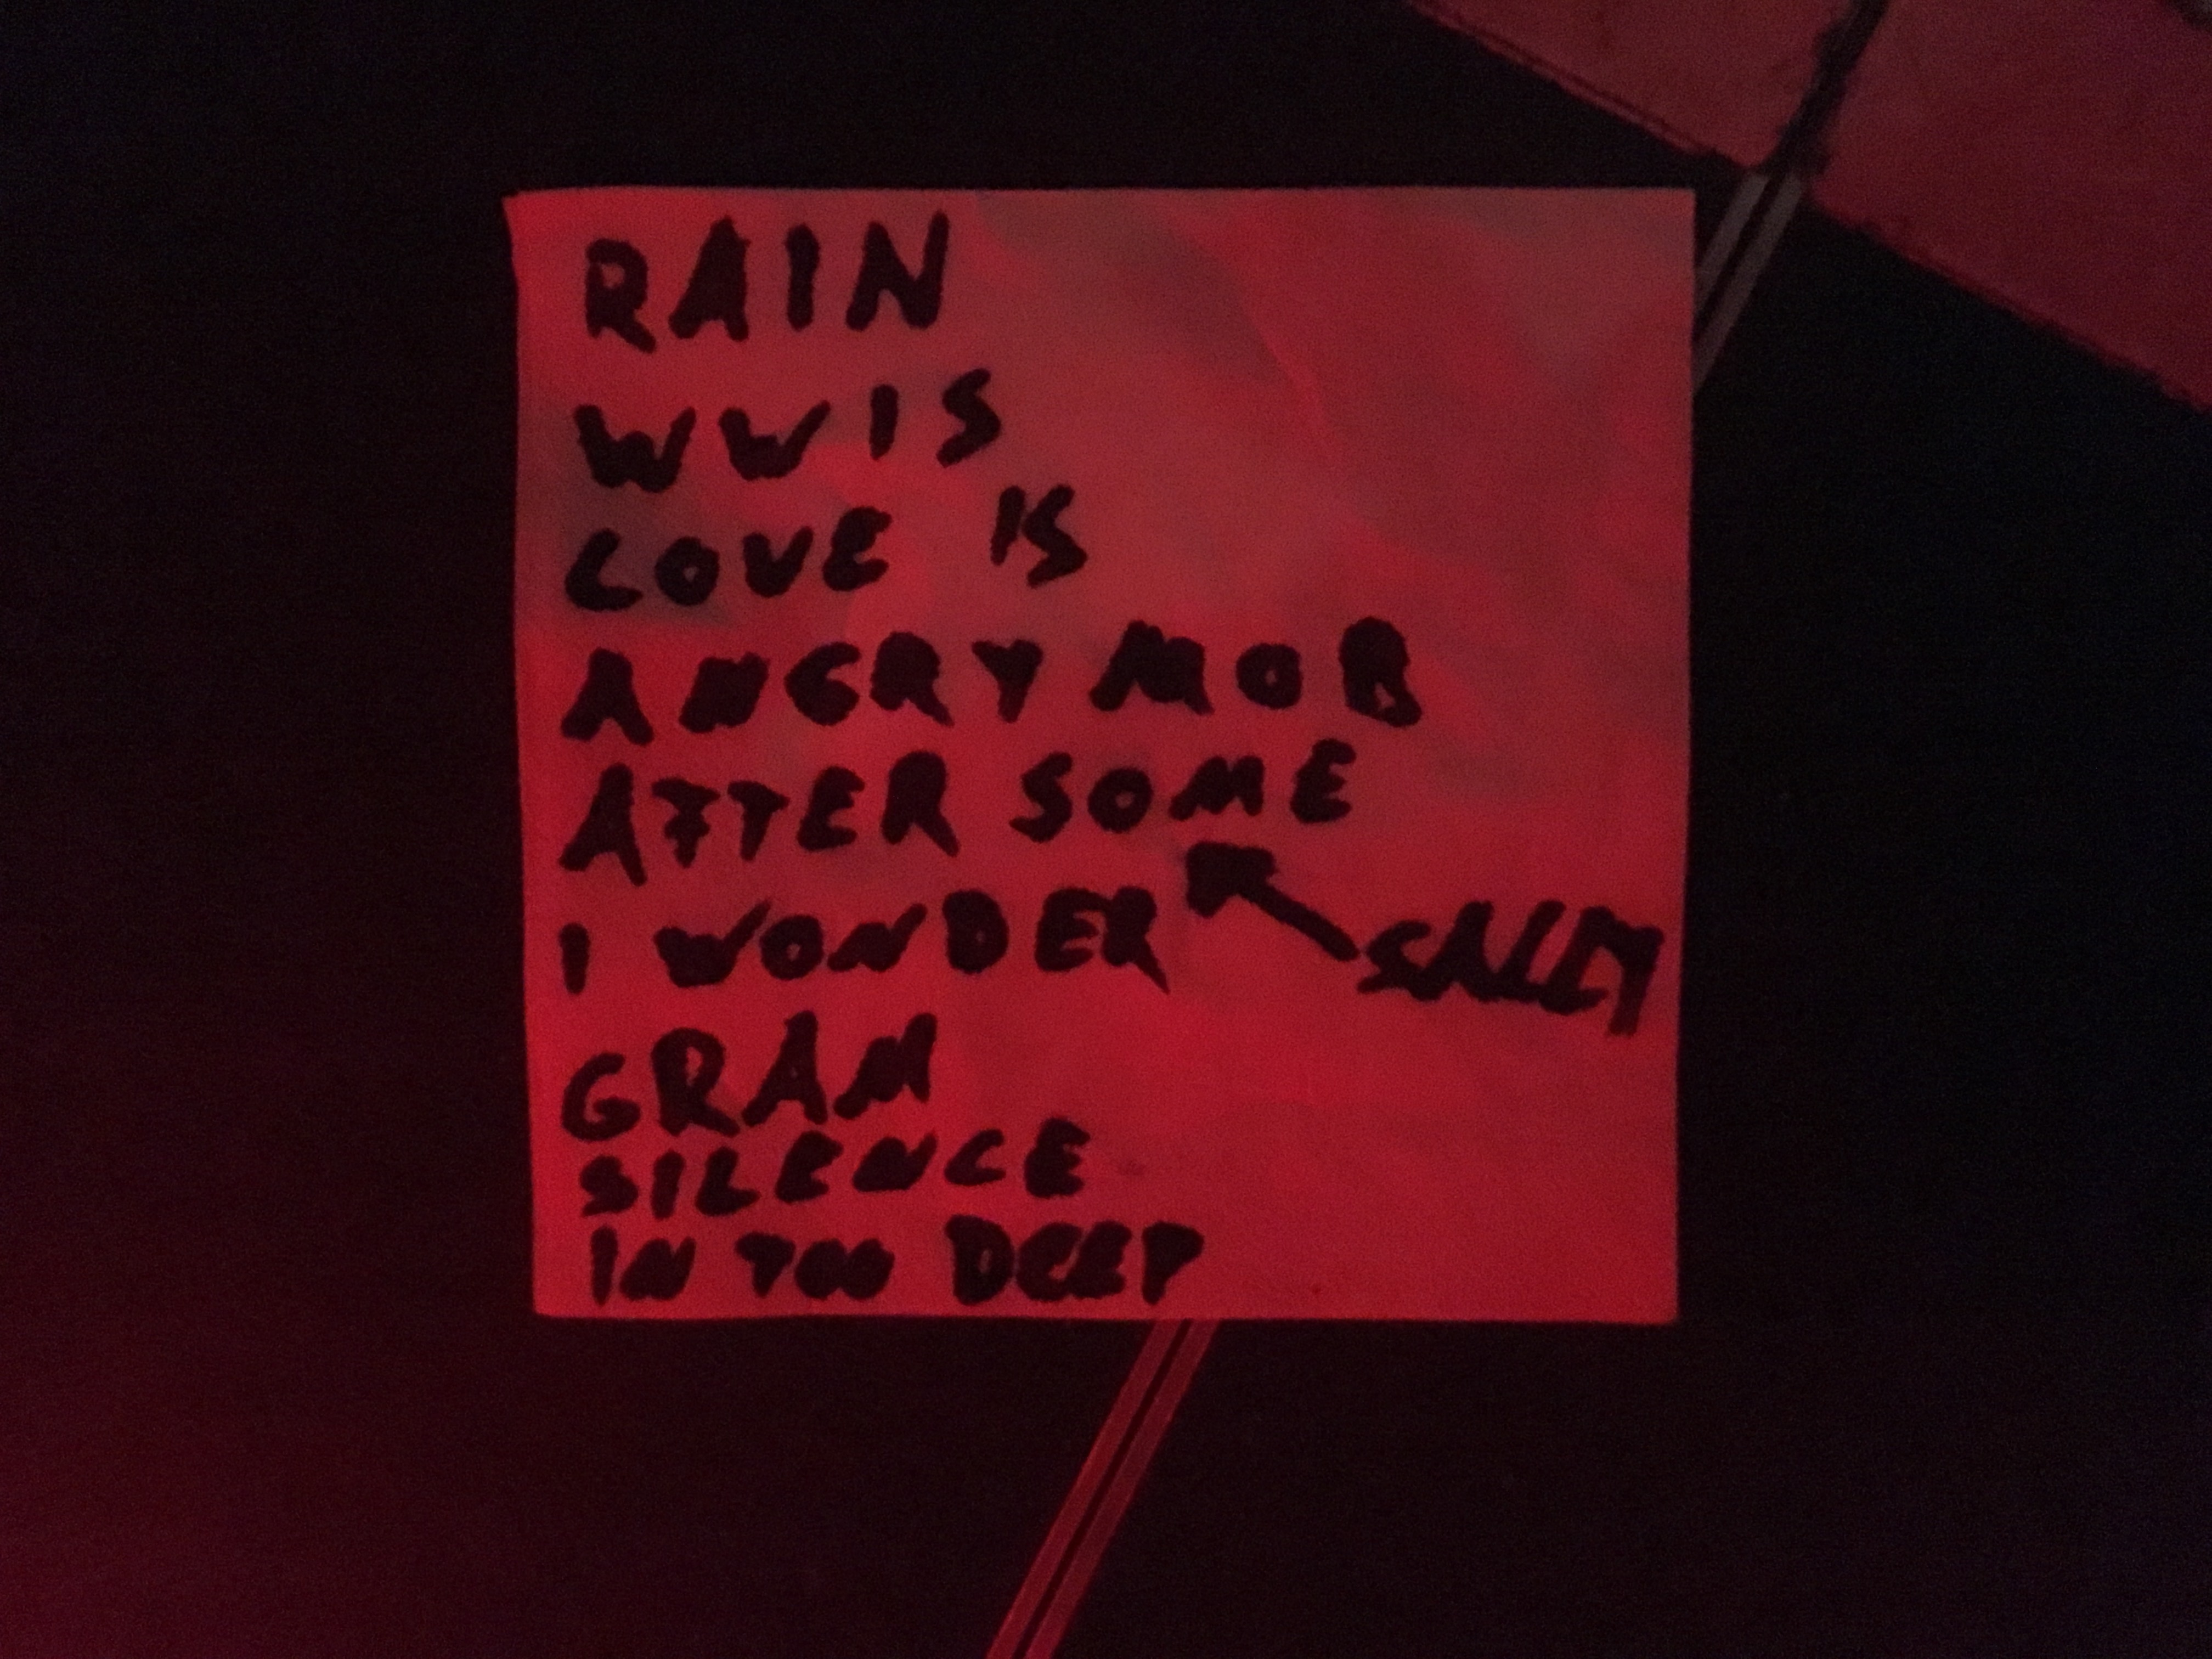 RAIN
WWIS
LOVE IS
ANGRY MOB
AFTER SOME
I WONDER
SALLY
GRAM
SILENCE
IN TOO DEEP